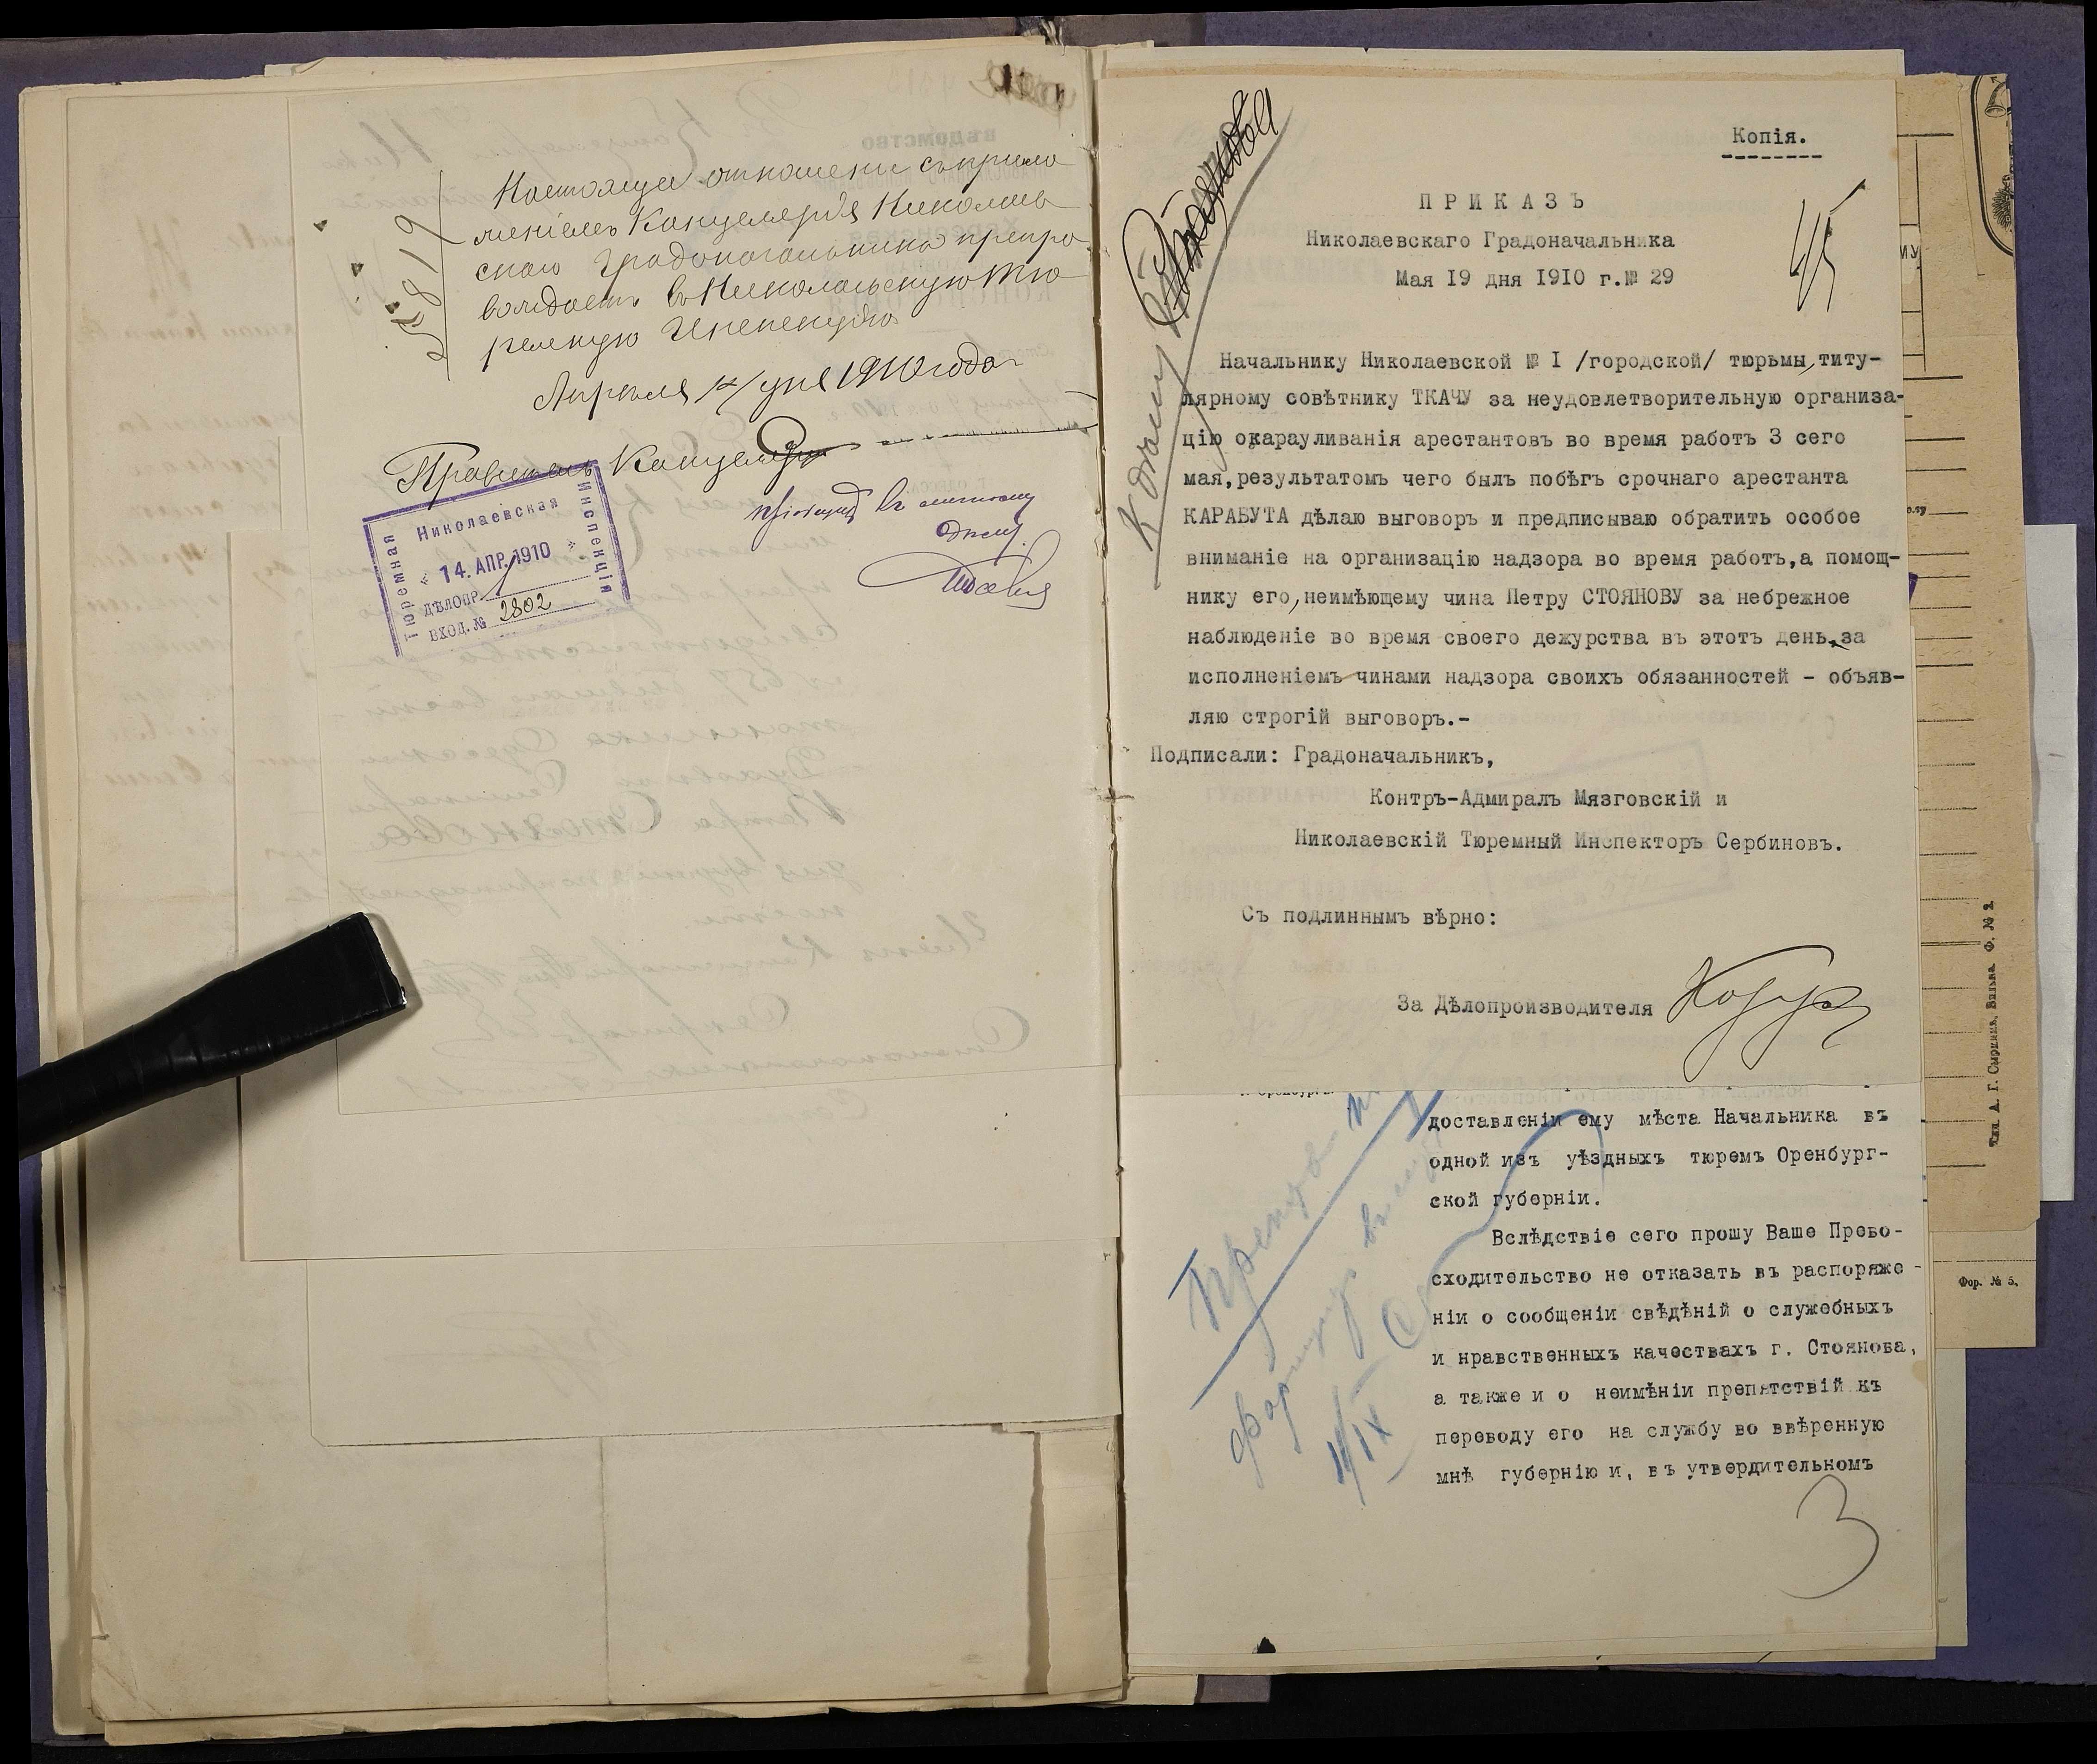 № 1819
Настоящее отношение съ прило
женіемъ Канцелярія Николаев
скаго Градоначальника препро
вождаетъ въ Николаевскую Тю
ремную Инспекцію
Апрѣля 14 дня 1910 года
Правитель Канцеляріи
Николаевская
Тюремная
Инспекція
" 14. АПР. 1910 "
ДѢЛОПР.
ВХОД. № 2802
къ личному
дѣлу.
Копія.
ПРИКАЗЪ
Николаевскаго Градоначальника
Мая 19 дня 1910 г.№ 29
45
К дѣлу Стоянова
Начальнику Николаевской № I /городской/ тюрьмы, титу-
лярному совѣтнику ТКАЧУ за неудовлетворительную организа-
цію окарауливанія арестантовъ во время работъ 3 сего
мая,результатомъ чего былъ побѣгъ срочнаго арестанта
КАРАБУТА дѣлаю выговоръ и предписываю обратить особое
вниманіе на организацію надзора во время работъ,а помощ-
нику его,неимѣющему чина Петру СТОЯНОВУ за небрежное
наблюденіе во время своего дежурства въ этотъ день за
исполненіемъ чинами надзора своихъ обязанностей - объяв-
ляю строгій выговоръ.-
Подписали: Градоначальникъ,
Контръ-Адмиралъ Мязговскій и
Николаевскій Тюремный Инспекторъ Сербиновъ.
Съ подлиннымъ вѣрно:
За Дѣлопроизводителя
доставленіи ему мѣста Начальника въ
одной изъ уѣздныхъ тюремъ Оренбург-
ской губерніи.
Вслѣдствіе сего прошу Ваше Прево-
сходительство не отказать въ распоряже-
ніи о сообщеніи свѣдѣній о служебныхъ
и нравственныхъ качествахъ г. Стоянова,
а также и о неимѣніи препятствій къ
переводу его на службу во ввѣренную
мнѣ губернію и, въ утвердительномъ
3
Тип. А. Г. Сыркина, Вильна Ф. № 2
Фор. № 5.